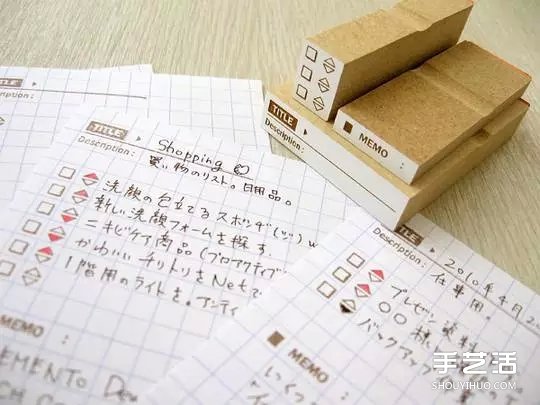 TITLE
Description:
MEMO
TITLE
Description:
TITLE
Description:
Shopping
買い物のリスト。日用品。
洗顔の泡立てるスポンヂ(ツ)w
新しい洗顔フォームを探す.
ニキビケイ商品(プロアクティブ
かわいいチリトリをNetで
1階用のライトを。アンティ
MEMO
TITLE
Description:
2010年4月2
仕事用
プレゼン資料
バックアップ
MEMO
手艺活
SHOUYIHUO.COM